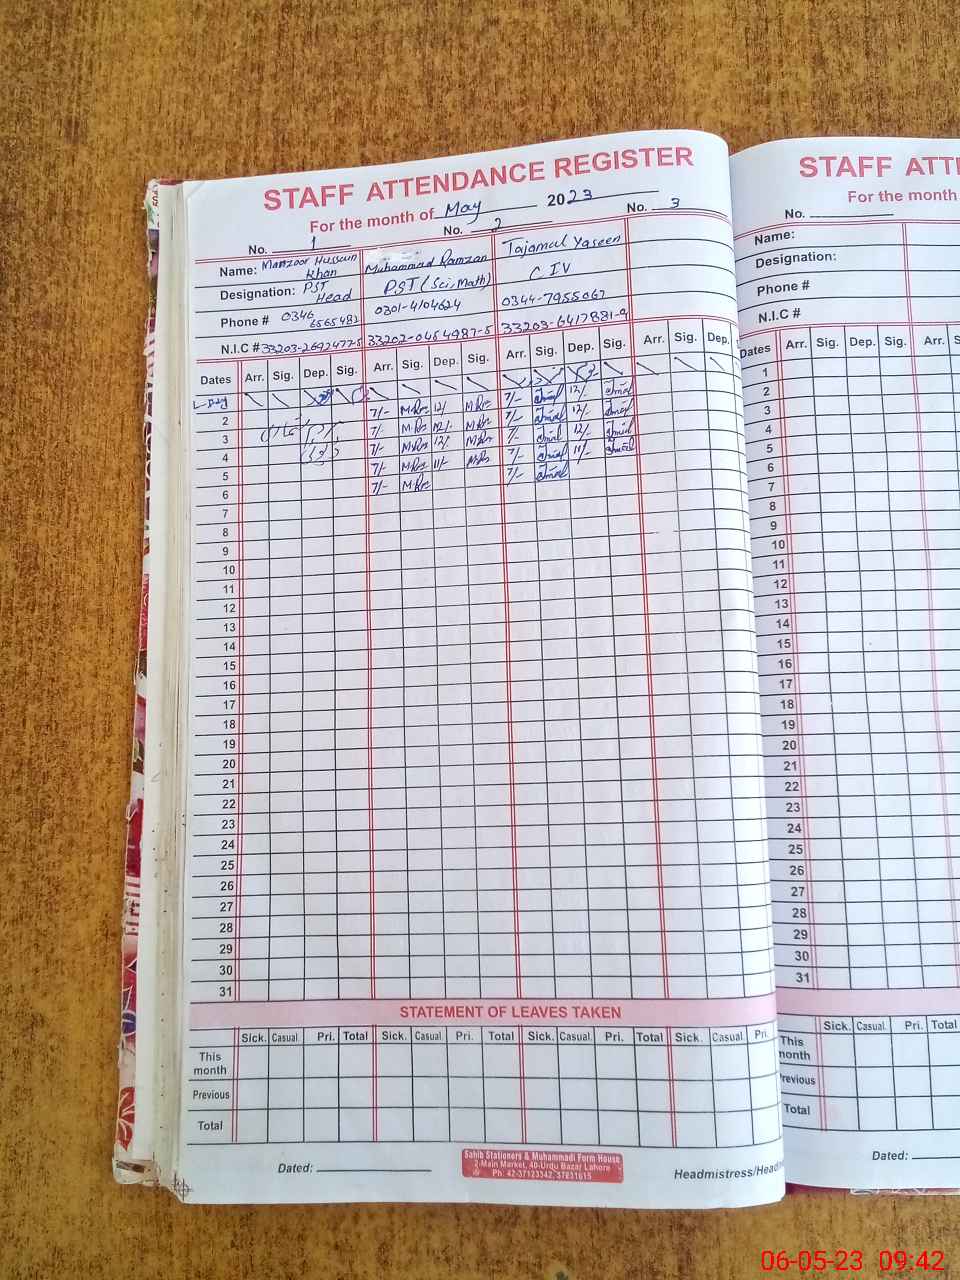 STAFF ATTENDANCE REGISTER
For the month of May 2023
No. 1 No. 2 No. 3
Name: Manzoor Hussain Khan Muhammad Ramzan Tajamal Yaseen
Designation: PST Head PST (Sci, Math) C IV
Phone # 0346 6565482 0301-4104624 0344-7955067
N.I.C # 33203-2692477-5 33202-0464987-5 33203-6417881-9
Dates Arr. Sig. Dep. Sig. Arr. Sig. Dep. Sig. Arr. Sig. Dep. Sig. Arr. Sig. Dep.
7/- 12/- 7/- 12/-
2 7/- 12/- 7/- 12/-
3 7/- 12/- 7/- 12/-
4 7/- 11/- 7/- 11/-
5 7/- 7/-
6
7
8
9
10
11
12
13
14
15
16
17
18
19
20
21
22
23
24
25
26
27
28
29
30
31
STATEMENT OF LEAVES TAKEN
Sick. Casual. Pri. Total Sick. Casual. Pri. Total Sick. Casual. Pri. Total Sick. Casual. Pri.
This month
Previous
Total
Dated:
Sahib Stationers & Muhammadi Form House
2-Main Market, 40-Urdu Bazar Lahore
Ph: 42-37123342, 37631615
Headmistress/Head
STAFF ATTE
For the month
No.
Name:
Designation:
Phone #
N.I.C #
Dates Arr. Sig. Dep. Sig. Arr. S
1
2
3
4
5
6
7
8
9
10
11
12
13
14
15
16
17
18
19
20
21
22
23
24
25
26
27
28
29
30
31
Sick. Casual. Pri. Total
This month
Previous
Total
Dated:
06-05-23 09:42